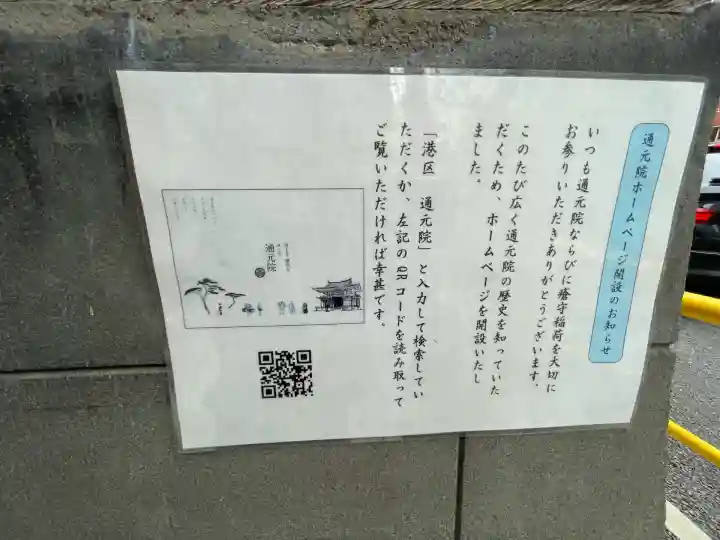 通元院ホームページ開設のお知らせ
いつも通元院ならびに瘡守稲荷を大切に
お参りいただきありがとうございます。
このたび広く通元院の歴史を知っていた
だくため、ホームページを開設いたし
ました。
「港区　通元院」と入力して検索してい
ただくか、左記のQRコードを読み取って
ご覧いただければ幸甚です。
通元院